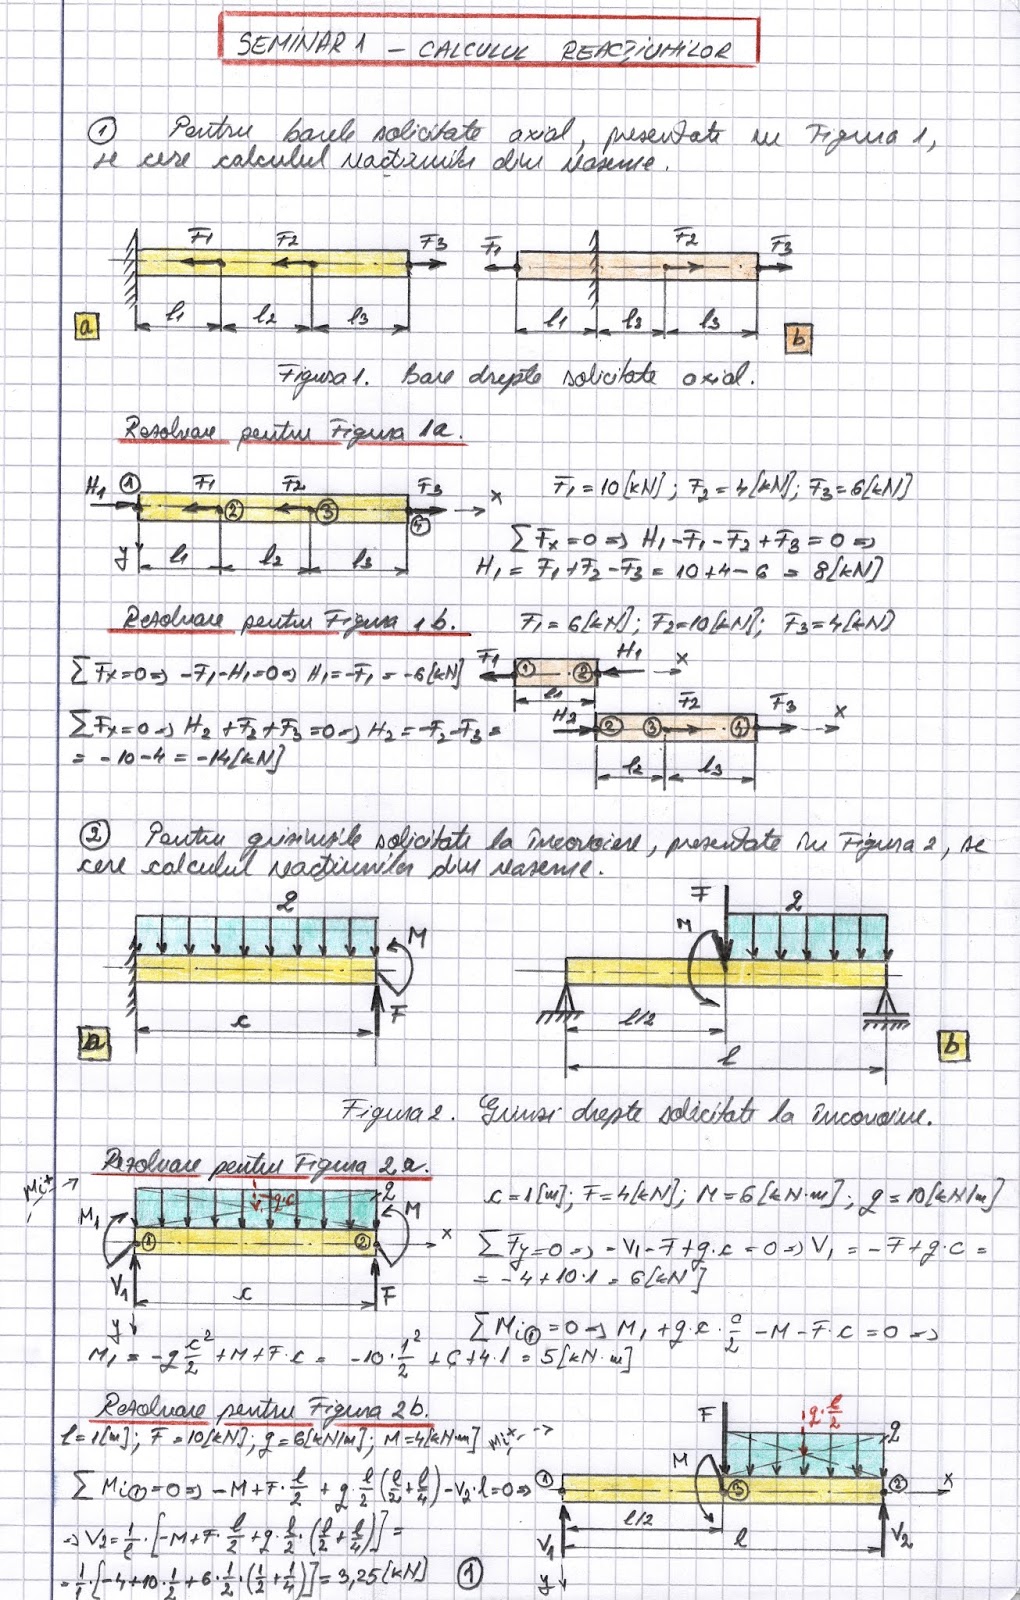 SEMINAR 1 – CALCULUL REACŢIUNILOR
① Pentru barele solicitate axial, prezentate în Figura 1,
se cere calculul reacţiunilor din reazeme.
F1 F2 F3 F1 F2 F3
l1 l2 l3 l1 l2 l3
a b
Figura 1. Bare drepte solicitate axial.
Rezolvare pentru Figura 1a.
H1 ① F1 F2 F3 x
② ③ ④
y l1 l2 l3
F1 = 10 [kN] ; F2 = 4 [kN] ; F3 = 6 [kN]
∑Fx = 0 => H1 - F1 - F2 + F3 = 0 =>
H1 = F1 + F2 - F3 = 10 + 4 - 6 = 8 [kN]
Rezolvare pentru Figura 1b.
F1 = 6 [kN] ; F2 = 10 [kN] ; F3 = 4 [kN]
∑Fx = 0 => -F1 - H1 = 0 => H1 = -F1 = -6 [kN]
F1 ① ② H1 x
l1
∑Fx = 0 => H2 + F2 + F3 = 0 => H2 = -F2 - F3 =
= -10 - 4 = -14 [kN]
H2 ② ③ F2 ④ F3 x
l2 l3
② Pentru grinzile solicitate la încovoiere, prezentate în Figura 2, se
cere calculul reacţiunilor din reazeme.
q M F
c
a
F M q
l/2
l
b
Figura 2. Grinzi drepte solicitate la încovoiere.
Rezolvare pentru Figura 2a.
Mi+
M1 q·c q M
① ② x
V1 c F
y
c = 1 [m] ; F = 4 [kN] ; M = 6 [kN·m] ; q = 10 [kN/m]
∑Fy = 0 => -V1 - F + q·c = 0 => V1 = -F + q·c =
= -4 + 10·1 = 6 [kN]
∑Mi① = 0 => M1 + q·c·c/2 - M - F·c = 0 =>
M1 = -q c²/2 + M + F·c = -10·1²/2 + 6 + 4·1 = 5 [kN·m]
Rezolvare pentru Figura 2b.
l = 1 [m] ; F = 10 [kN] ; q = 6 [kN/m] ; M = 4 [kN·m] Mi+
∑Mi① = 0 => -M + F·l/2 + q·l/2·(l/2 + l/4) - V2·l = 0 =>
=> V2 = 1/l·[-M + F·l/2 + q·l/2·(l/2 + l/4)] =
= 1/1·[-4 + 10·1/2 + 6·1/2·(1/2 + 1/4)] = 3,25 [kN]
F q·l/2 q
M
① ③ ② x
l/2
V1 l V2
y
①